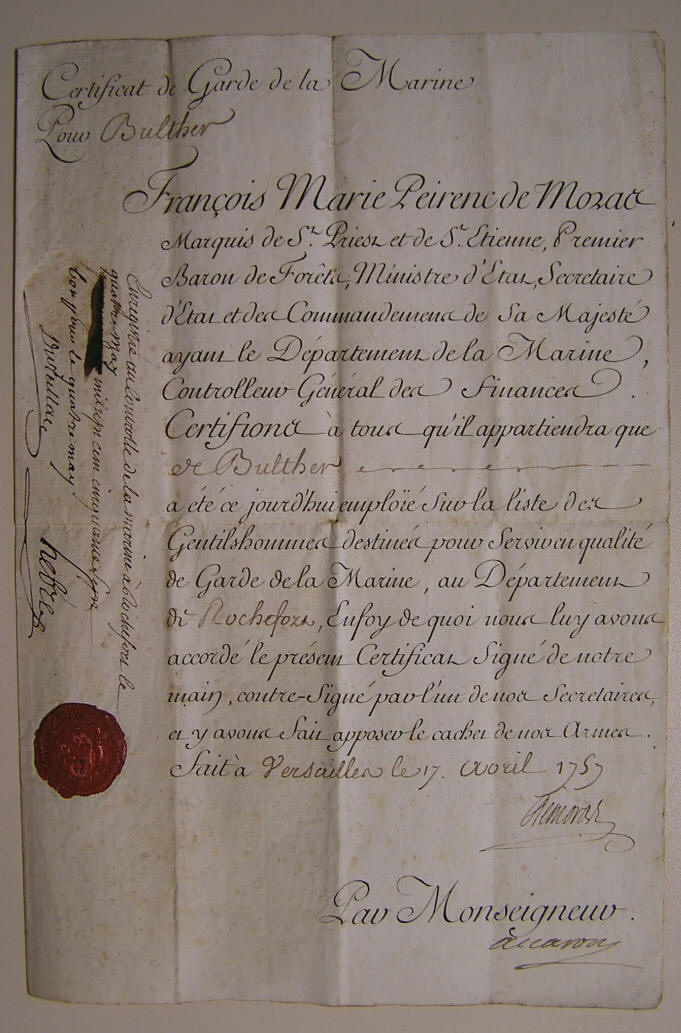 Certificat de Garde de la Marine
Pour Bulther
François Marie Peirenc de Moras
Marquis de St. Priest et de St. Etienne, Premier
Baron de Forêts, Ministre d'Etat, Secretaire
d'Etat et des Commandemens de Sa Majesté
ayant le Département de la Marine,
Controlleur Général des Finances.
Certifions à tous qu'il appartiendra que
de Bulther
a été ce jourd'hui emploïé sur la liste des
Gentilshommes destinés pour Servir en qualité
de Garde de la Marine, au Département
de Rochefort, Enfoy de quoi nous luy avons
accordé le présent Certificat Signé de notre
main, contre-Signé par l'un de nos Secretaires,
et y avons fait apposer le cachet de nos Armes.
Fait à Versailles le 17. avril 1757
Par Monseigneur.
Enregistré au Controlle de la marine à Rochefort le
quatre may
mil sept cent cinquante sept
le quatre may